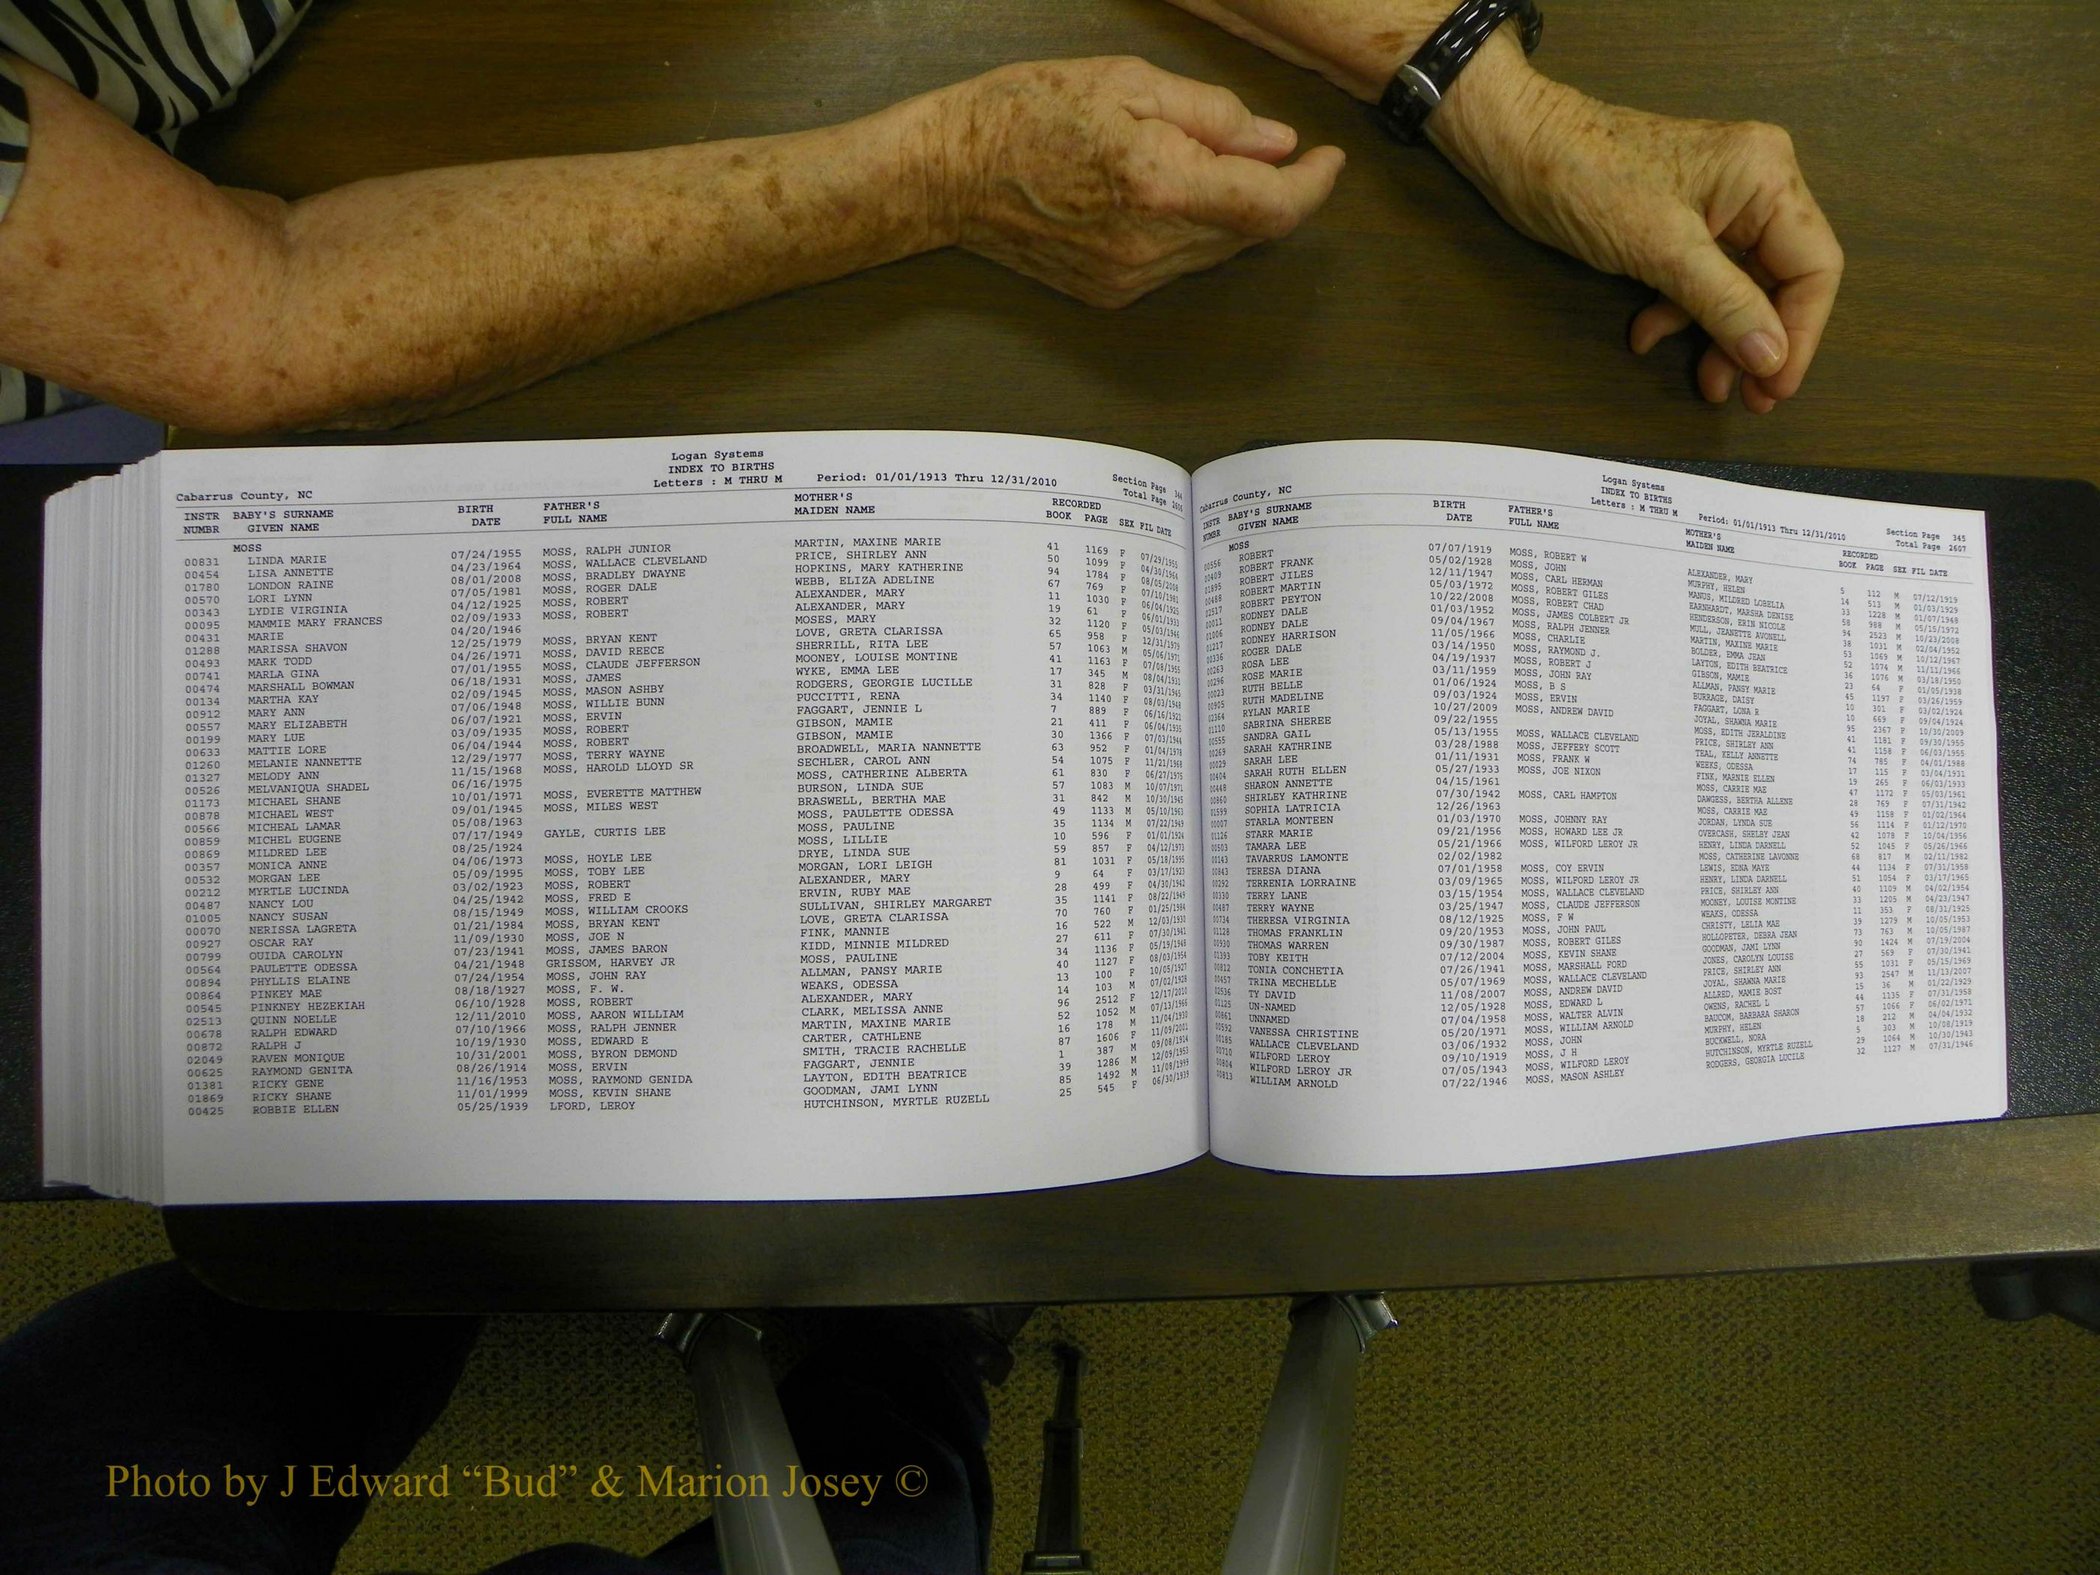 Logan Systems
INDEX TO BIRTHS
Letters : M THRU M Period: 01/01/1913 Thru 12/31/2010
Section Page 344
Total Page 2606
Cabarrus County, NC
INSTR BABY'S SURNAME BIRTH FATHER'S MOTHER'S RECORDED
NUMBR GIVEN NAME DATE FULL NAME MAIDEN NAME BOOK PAGE SEX FIL DATE
MOSS
00831 LINDA MARIE 07/24/1955 MOSS, RALPH JUNIOR MARTIN, MAXINE MARIE 41 1169 F 07/29/1955
00454 LISA ANNETTE 04/23/1964 MOSS, WALLACE CLEVELAND PRICE, SHIRLEY ANN 50 1099 F 04/30/1964
01780 LONDON RAINE 08/01/2008 MOSS, BRADLEY DWAYNE HOPKINS, MARY KATHERINE 94 1784 F 08/05/2008
00570 LORI LYNN 07/05/1981 MOSS, ROGER DALE WEBB, ELIZA ADELINE 67 769 F 07/10/1981
00343 LYDIE VIRGINIA 04/12/1925 MOSS, ROBERT ALEXANDER, MARY 11 1030 F 06/04/1925
00095 MAMMIE MARY FRANCES 02/09/1933 MOSS, ROBERT ALEXANDER, MARY 19 61 F 06/01/1933
00431 MARIE 04/20/1946 MOSES, MARY 32 1120 F 05/03/1946
01288 MARISSA SHAVON 12/25/1979 MOSS, BRYAN KENT LOVE, GRETA CLARISSA 65 958 F 12/31/1979
00493 MARK TODD 04/26/1971 MOSS, DAVID REECE SHERRILL, RITA LEE 57 1063 M 05/06/1971
00741 MARLA GINA 07/01/1955 MOSS, CLAUDE JEFFERSON MOONEY, LOUISE MONTINE 41 1163 F 07/08/1955
00474 MARSHALL BOWMAN 06/18/1931 MOSS, JAMES WYKE, EMMA LEE 17 345 M 08/04/1931
00134 MARTHA KAY 02/09/1945 MOSS, MASON ASHBY RODGERS, GEORGIE LUCILLE 31 828 F 03/31/1945
00912 MARY ANN 07/06/1948 MOSS, WILLIE BUNN PUCCITTI, RENA 34 1140 F 08/03/1948
00557 MARY ELIZABETH 06/07/1921 MOSS, ERVIN FAGGART, JENNIE L 7 889 F 06/16/1921
00199 MARY LUE 03/09/1935 MOSS, ROBERT GIBSON, MAMIE 21 411 F 06/04/1935
00633 MATTIE LORE 06/04/1944 MOSS, ROBERT GIBSON, MAMIE 30 1366 F 07/03/1944
01260 MELANIE NANNETTE 12/29/1977 MOSS, TERRY WAYNE BROADWELL, MARIA NANNETTE 63 952 F 01/04/1978
01327 MELODY ANN 11/15/1968 MOSS, HAROLD LLOYD SR SECHLER, CAROL ANN 54 1075 F 11/21/1968
00526 MELVANIQUA SHADEL 06/16/1975 MOSS, CATHERINE ALBERTA 61 830 F 06/27/1975
01173 MICHAEL SHANE 10/01/1971 MOSS, EVERETTE MATTHEW BURSON, LINDA SUE 57 1083 M 10/07/1971
00878 MICHAEL WEST 09/01/1945 MOSS, MILES WEST BRASWELL, BERTHA MAE 31 842 M 10/30/1945
00566 MICHEAL LAMAR 05/08/1963 MOSS, PAULETTE ODESSA 49 1133 M 05/10/1963
00859 MICHEL EUGENE 07/17/1949 GAYLE, CURTIS LEE MOSS, PAULINE 35 1134 M 07/22/1949
00869 MILDRED LEE 08/25/1924 MOSS, LILLIE 10 596 F 01/01/1924
00357 MONICA ANNE 04/06/1973 MOSS, HOYLE LEE DRYE, LINDA SUE 59 857 F 04/12/1973
00532 MORGAN LEE 05/09/1995 MOSS, TOBY LEE MORGAN, LORI LEIGH 81 1031 F 05/18/1995
00212 MYRTLE LUCINDA 03/02/1923 MOSS, ROBERT ALEXANDER, MARY 9 64 F 03/17/1923
00487 NANCY LOU 04/25/1942 MOSS, FRED E ERVIN, RUBY MAE 28 499 F 04/30/1942
01005 NANCY SUSAN 08/15/1949 MOSS, WILLIAM CROOKS SULLIVAN, SHIRLEY MARGARET 35 1141 F 08/22/1949
00070 NERISSA LAGRETA 01/21/1984 MOSS, BRYAN KENT LOVE, GRETA CLARISSA 70 760 F 01/25/1984
00927 OSCAR RAY 11/09/1930 MOSS, JOE N FINK, MANNIE 16 522 M 12/03/1930
00799 OUIDA CAROLYN 07/23/1941 MOSS, JAMES BARON KIDD, MINNIE MILDRED 27 611 F 07/30/1941
00564 PAULETTE ODESSA 04/21/1948 GRISSOM, HARVEY JR MOSS, PAULINE 34 1136 F 05/19/1948
00894 PHYLLIS ELAINE 07/24/1954 MOSS, JOHN RAY ALLMAN, PANSY MARIE 40 1127 F 08/03/1954
00864 PINKEY MAE 08/18/1927 MOSS, F. W. WEAKS, ODESSA 13 100 F 10/05/1927
00545 PINKNEY HEZEKIAH 06/10/1928 MOSS, ROBERT ALEXANDER, MARY 14 103 M 07/02/1928
02513 QUINN NOELLE 12/11/2010 MOSS, AARON WILLIAM CLARK, MELISSA ANNE 96 2512 F 12/17/2010
00678 RALPH EDWARD 07/10/1966 MOSS, RALPH JENNER MARTIN, MAXINE MARIE 52 1052 M 07/13/1966
00872 RALPH J 10/19/1930 MOSS, EDWARD E CARTER, CATHLENE 16 178 M 11/04/1930
02049 RAVEN MONIQUE 10/31/2001 MOSS, BYRON DEMOND SMITH, TRACIE RACHELLE 87 1606 F 11/09/2001
00625 RAYMOND GENITA 08/26/1914 MOSS, ERVIN FAGGART, JENNIE 1 387 M 09/08/1914
01381 RICKY GENE 11/16/1953 MOSS, RAYMOND GENIDA LAYTON, EDITH BEATRICE 39 1286 M 12/09/1953
01869 RICKY SHANE 11/01/1999 MOSS, KEVIN SHANE GOODMAN, JAMI LYNN 85 1492 M 11/08/1999
00425 ROBBIE ELLEN 05/25/1939 LFORD, LEROY HUTCHINSON, MYRTLE RUZELL 25 545 F 06/30/1939
Logan Systems
INDEX TO BIRTHS
Letters : M THRU M Period: 01/01/1913 Thru 12/31/2010
Section Page 345
Total Page 2607
Cabarrus County, NC
INSTR BABY'S SURNAME BIRTH FATHER'S MOTHER'S RECORDED
NUMBR GIVEN NAME DATE FULL NAME MAIDEN NAME BOOK PAGE SEX FIL DATE
MOSS
00556 ROBERT 07/07/1919 MOSS, ROBERT W ALEXANDER, MARY 5 112 M 07/12/1919
00409 ROBERT FRANK 05/02/1928 MOSS, JOHN MURPHY, HELEN 14 513 M 01/03/1929
01895 ROBERT JILES 12/11/1947 MOSS, CARL HERMAN MANUS, MILDRED LOBELIA 33 1228 M 01/07/1948
00488 ROBERT MARTIN 05/03/1972 MOSS, ROBERT GILES EARNHARDT, MARSHA DENISE 58 988 M 05/15/1972
02517 ROBERT PEYTON 10/22/2008 MOSS, ROBERT CHAD HENDERSON, ERIN NICOLE 94 2523 M 10/23/2008
00011 RODNEY DALE 01/03/1952 MOSS, JAMES COLBERT JR MULL, JEANETTE AVONELL 38 1031 M 02/04/1952
01006 RODNEY DALE 09/04/1967 MOSS, RALPH JENNER MARTIN, MAXINE MARIE 53 1069 M 10/12/1967
01217 RODNEY HARRISON 11/05/1966 MOSS, CHARLIE BOLDER, EMMA JEAN 52 1074 M 11/11/1966
00336 ROGER DALE 03/14/1950 MOSS, RAYMOND J. LAYTON, EDITH BEATRICE 36 1076 M 03/18/1950
00263 ROSA LEE 04/19/1937 MOSS, ROBERT J GIBSON, MAMIE 23 64 F 01/05/1938
00296 ROSE MARIE 03/11/1959 MOSS, JOHN RAY ALLMAN, PANSY MARIE 45 1197 F 03/26/1959
00023 RUTH BELLE 01/06/1924 MOSS, B S BURRAGE, DAISY 10 301 F 03/02/1924
00905 RUTH MADELINE 09/03/1924 MOSS, ERVIN FAGGART, LONA R 10 669 F 09/04/1924
02364 RYLAN MARIE 10/27/2009 MOSS, ANDREW DAVID JOYAL, SHAWNA MARIE 95 2367 F 10/30/2009
01110 SABRINA SHEREE 09/22/1955 MOSS, EDITH JERALDINE 41 1181 F 09/30/1955
00555 SANDRA GAIL 05/13/1955 MOSS, WALLACE CLEVELAND PRICE, SHIRLEY ANN 41 1158 F 06/03/1955
00269 SARAH KATHRINE 03/28/1988 MOSS, JEFFERY SCOTT TEAL, KELLY ANNETTE 74 785 F 04/01/1988
00029 SARAH LEE 01/11/1931 MOSS, FRANK W WEEKS, ODESSA 17 115 F 03/04/1931
00404 SARAH RUTH ELLEN 05/27/1933 MOSS, JOE NIXON FINK, MARNIE ELLEN 19 265 F 06/03/1933
00448 SHARON ANNETTE 04/15/1961 MOSS, CARRIE MAE 47 1172 F 05/03/1961
00860 SHIRLEY KATHRINE 07/30/1942 MOSS, CARL HAMPTON DAWGESS, BERTHA ALLENE 28 769 F 07/31/1942
01599 SOPHIA LATRICIA 12/26/1963 MOSS, CARRIE MAE 49 1158 F 01/02/1964
00007 STARLA MONTEEN 01/03/1970 MOSS, JOHNNY RAY JORDAN, LYNDA SUE 56 1114 F 01/12/1970
01126 STARR MARIE 09/21/1956 MOSS, HOWARD LEE JR OVERCASH, SHELBY JEAN 42 1078 F 10/04/1956
00503 TAMARA LEE 05/21/1966 MOSS, WILFORD LEROY JR HENRY, LINDA DARNELL 52 1045 F 05/26/1966
00143 TAVARRUS LAMONTE 02/02/1982 MOSS, CATHERINE LAVONNE 68 817 M 02/11/1982
00843 TERESA DIANA 07/01/1958 MOSS, COY ERVIN LEWIS, EDNA MAYE 44 1134 F 07/31/1958
00292 TERRENIA LORRAINE 03/09/1965 MOSS, WILFORD LEROY JR HENRY, LINDA DARNELL 51 1054 F 03/17/1965
00330 TERRY LANE 03/15/1954 MOSS, WALLACE CLEVELAND PRICE, SHIRLEY ANN 40 1109 M 04/02/1954
00487 TERRY WAYNE 03/25/1947 MOSS, CLAUDE JEFFERSON MOONEY, LOUISE MONTINE 33 1205 M 04/23/1947
00734 THERESA VIRGINIA 08/12/1925 MOSS, F W WEAKS, ODESSA 11 353 F 08/31/1925
01128 THOMAS FRANKLIN 09/20/1953 MOSS, JOHN PAUL CHRISTY, LELIA MAE 39 1279 M 10/05/1953
00930 THOMAS WARREN 09/30/1987 MOSS, ROBERT GILES HOLLOPETER, DEBRA JEAN 73 763 M 10/05/1987
01393 TOBY KEITH 07/12/2004 MOSS, KEVIN SHANE GOODMAN, JAMI LYNN 90 1424 M 07/19/2004
00812 TONIA CONCHETIA 07/26/1941 MOSS, MARSHALL FORD JONES, CAROLYN LOUISE 27 569 F 07/30/1941
00457 TRINA MECHELLE 05/07/1969 MOSS, WALLACE CLEVELAND PRICE, SHIRLEY ANN 55 1031 F 05/15/1969
02536 TY DAVID 11/08/2007 MOSS, ANDREW DAVID JOYAL, SHAWNA MARIE 93 2547 M 11/13/2007
01125 UN-NAMED 12/05/1928 MOSS, EDWARD L ALLRED, MAMIE BOST 15 36 M 01/22/1929
00861 UNNAMED 07/04/1958 MOSS, WALTER ALVIN OWENS, RACHEL L 44 1135 F 07/31/1958
00592 VANESSA CHRISTINE 05/20/1971 MOSS, WILLIAM ARNOLD BAUCOM, BARBARA SHARON 57 1066 F 06/02/1971
00185 WALLACE CLEVELAND 03/06/1932 MOSS, JOHN MURPHY, HELEN 18 212 M 04/04/1932
00710 WILFORD LEROY 09/10/1919 MOSS, J H BUCKWELL, NORA 5 303 M 10/08/1919
00804 WILFORD LEROY JR 07/05/1943 MOSS, WILFORD LEROY HUTCHINSON, MYRTLE RUZELL 29 1064 M 10/30/1943
00813 WILLIAM ARNOLD 07/22/1946 MOSS, MASON ASHLEY RODGERS, GEORGIA LUCILE 32 1127 M 07/31/1946
Photo by J Edward “Bud” & Marion Josey ©